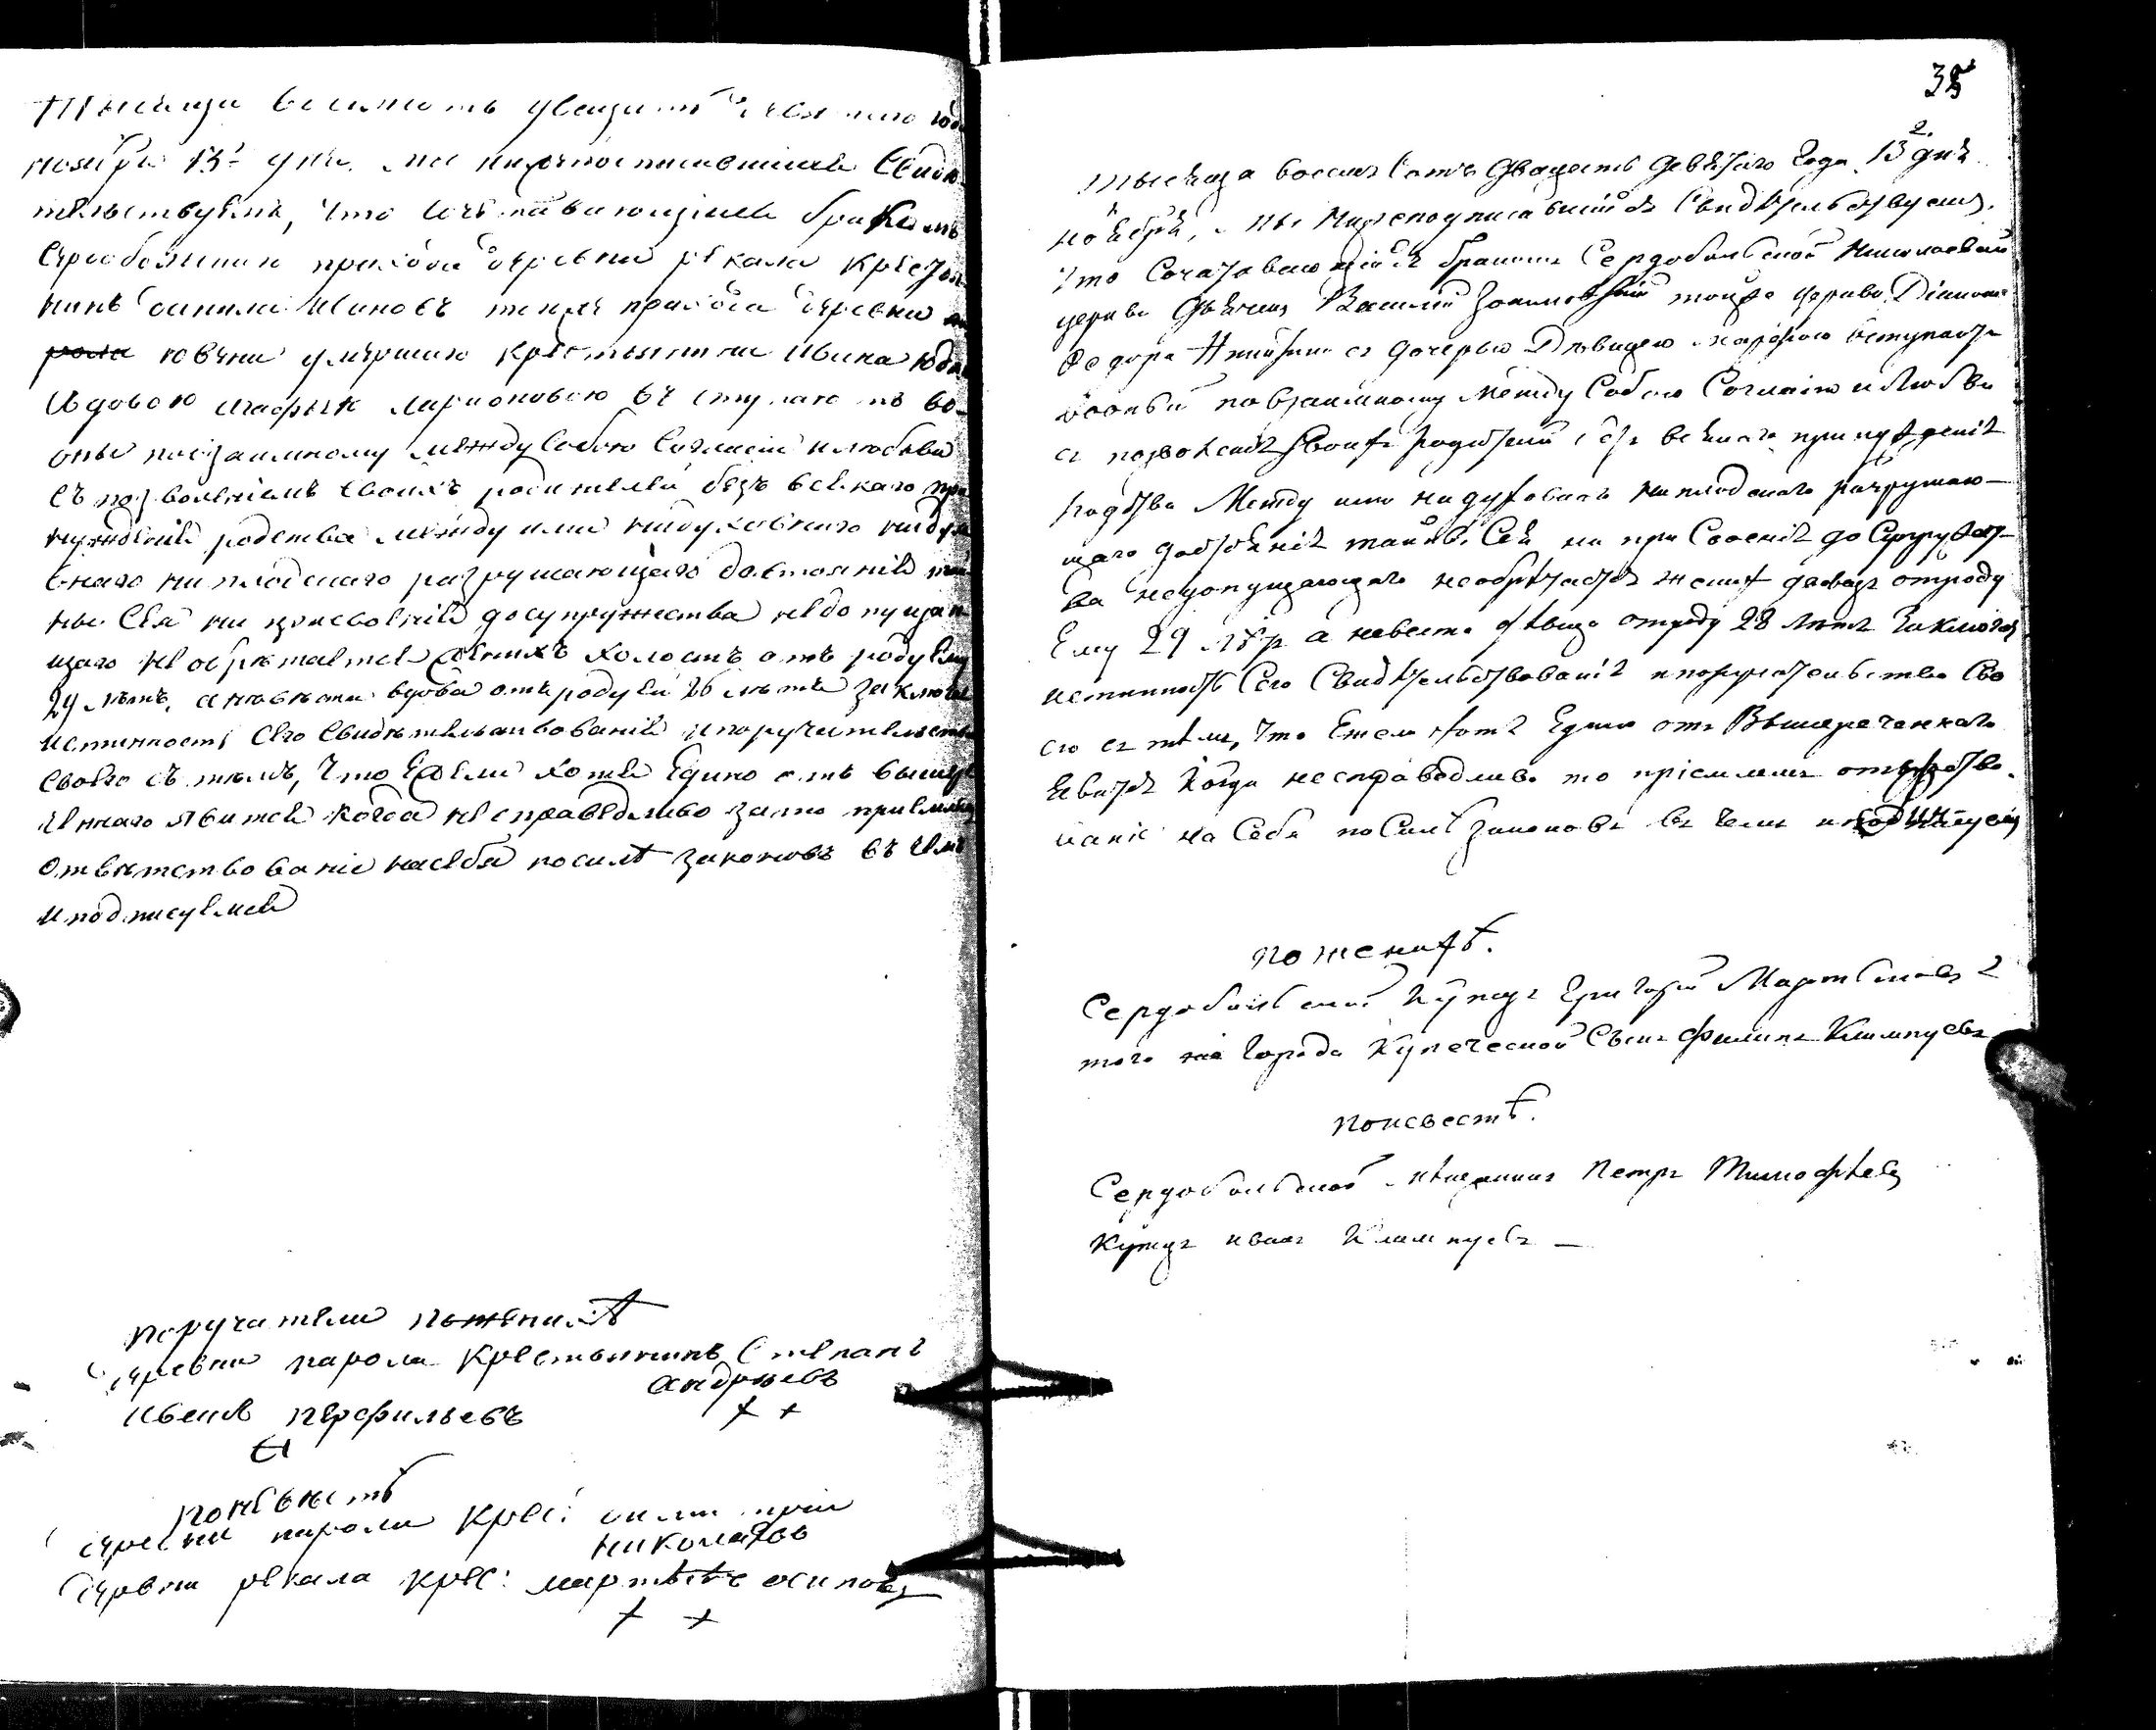 Тысяща восемсотъ двацать девятого года
ноября 13 дня мы нижеподписавшиеся свидѣ-
тельствуемъ, что сочетавающиеся бракомъ
Сердобольскаго прихода деревни рекала крестья-
нинъ данила ивановъ тогоже прихода деревни
ювени умершаго крестьянина ивана
вдовою агафьею ларионовою въ ступаютъ во
оные повзаимному между собою согласию и любови
съ позволениемъ своихъ родителей безъ всякаго при
нуждения родства между ими ни духовнаго
внаго ни плодскаго разрушающаго достояния тай
ны сея ни присвоения до супружества недопущаю
щаго не обретается женихъ холостъ отъ роду ему
29 летъ, а невеста вдова отъ роду ей 26 летъ заключая
истинность сего свидетельствования и поручительства
своего съ темъ, что ежели хотя едино отъ вышере
ченнаго явится когда несправедливо за то приемлемъ
ответствование насебя посиле законовъ въ чемъ
и подписуемся
поручатели поженихѣ
деревни парола крестьянинъ степанъ
андреевъ
+ +
иванъ перфильевъ
поневѣстѣ
деревни парола крес:
николаевъ
деревни рекала крес: осиповъ
+ +
35
2.
тысяща восемъ сотъ двацать девятаго года 13 дня
ноября, мы нижеподписавшиися свидѣтельствуемъ,
что сочатавающиися бракомъ Сердобольской николаевской
церкви дьячекъ Василий тойже церкви Диакона
Федора съ дочерью Дѣвицею марфою вступаютъ
вооный повзаимному между собою согласию и любви
съ позволения своихъ родителей безъ всякаго принуждения
родства между ими нидуховнаго ниплодскаго разрушаю-
щаго достояния тайны сея ни при своения до супружест-
ва недопущающаго необрѣтается женихъ отроду
ему 29 лѣтъ а невеста дѣвица отроду 28 лѣтъ Заключая
истинность сего свидѣтельствования ипоручательство сво
его съ тѣмъ, что ежели хотя едино отъ вышереченнаго
явится когда несправедливо то приемлемъ отвѣтство-
вание на себя посилѣ законовъ въ чемъ иподписуемся
поженихѣ.
Сердобольской купецъ Григорий Мартыновъ
того же города купеческой сынъ Филипъ Климпуевъ
поневестѣ.
Сердобольской мѣщанинъ Петръ Тимофѣевъ
купецъ иванъ Климпуевъ —